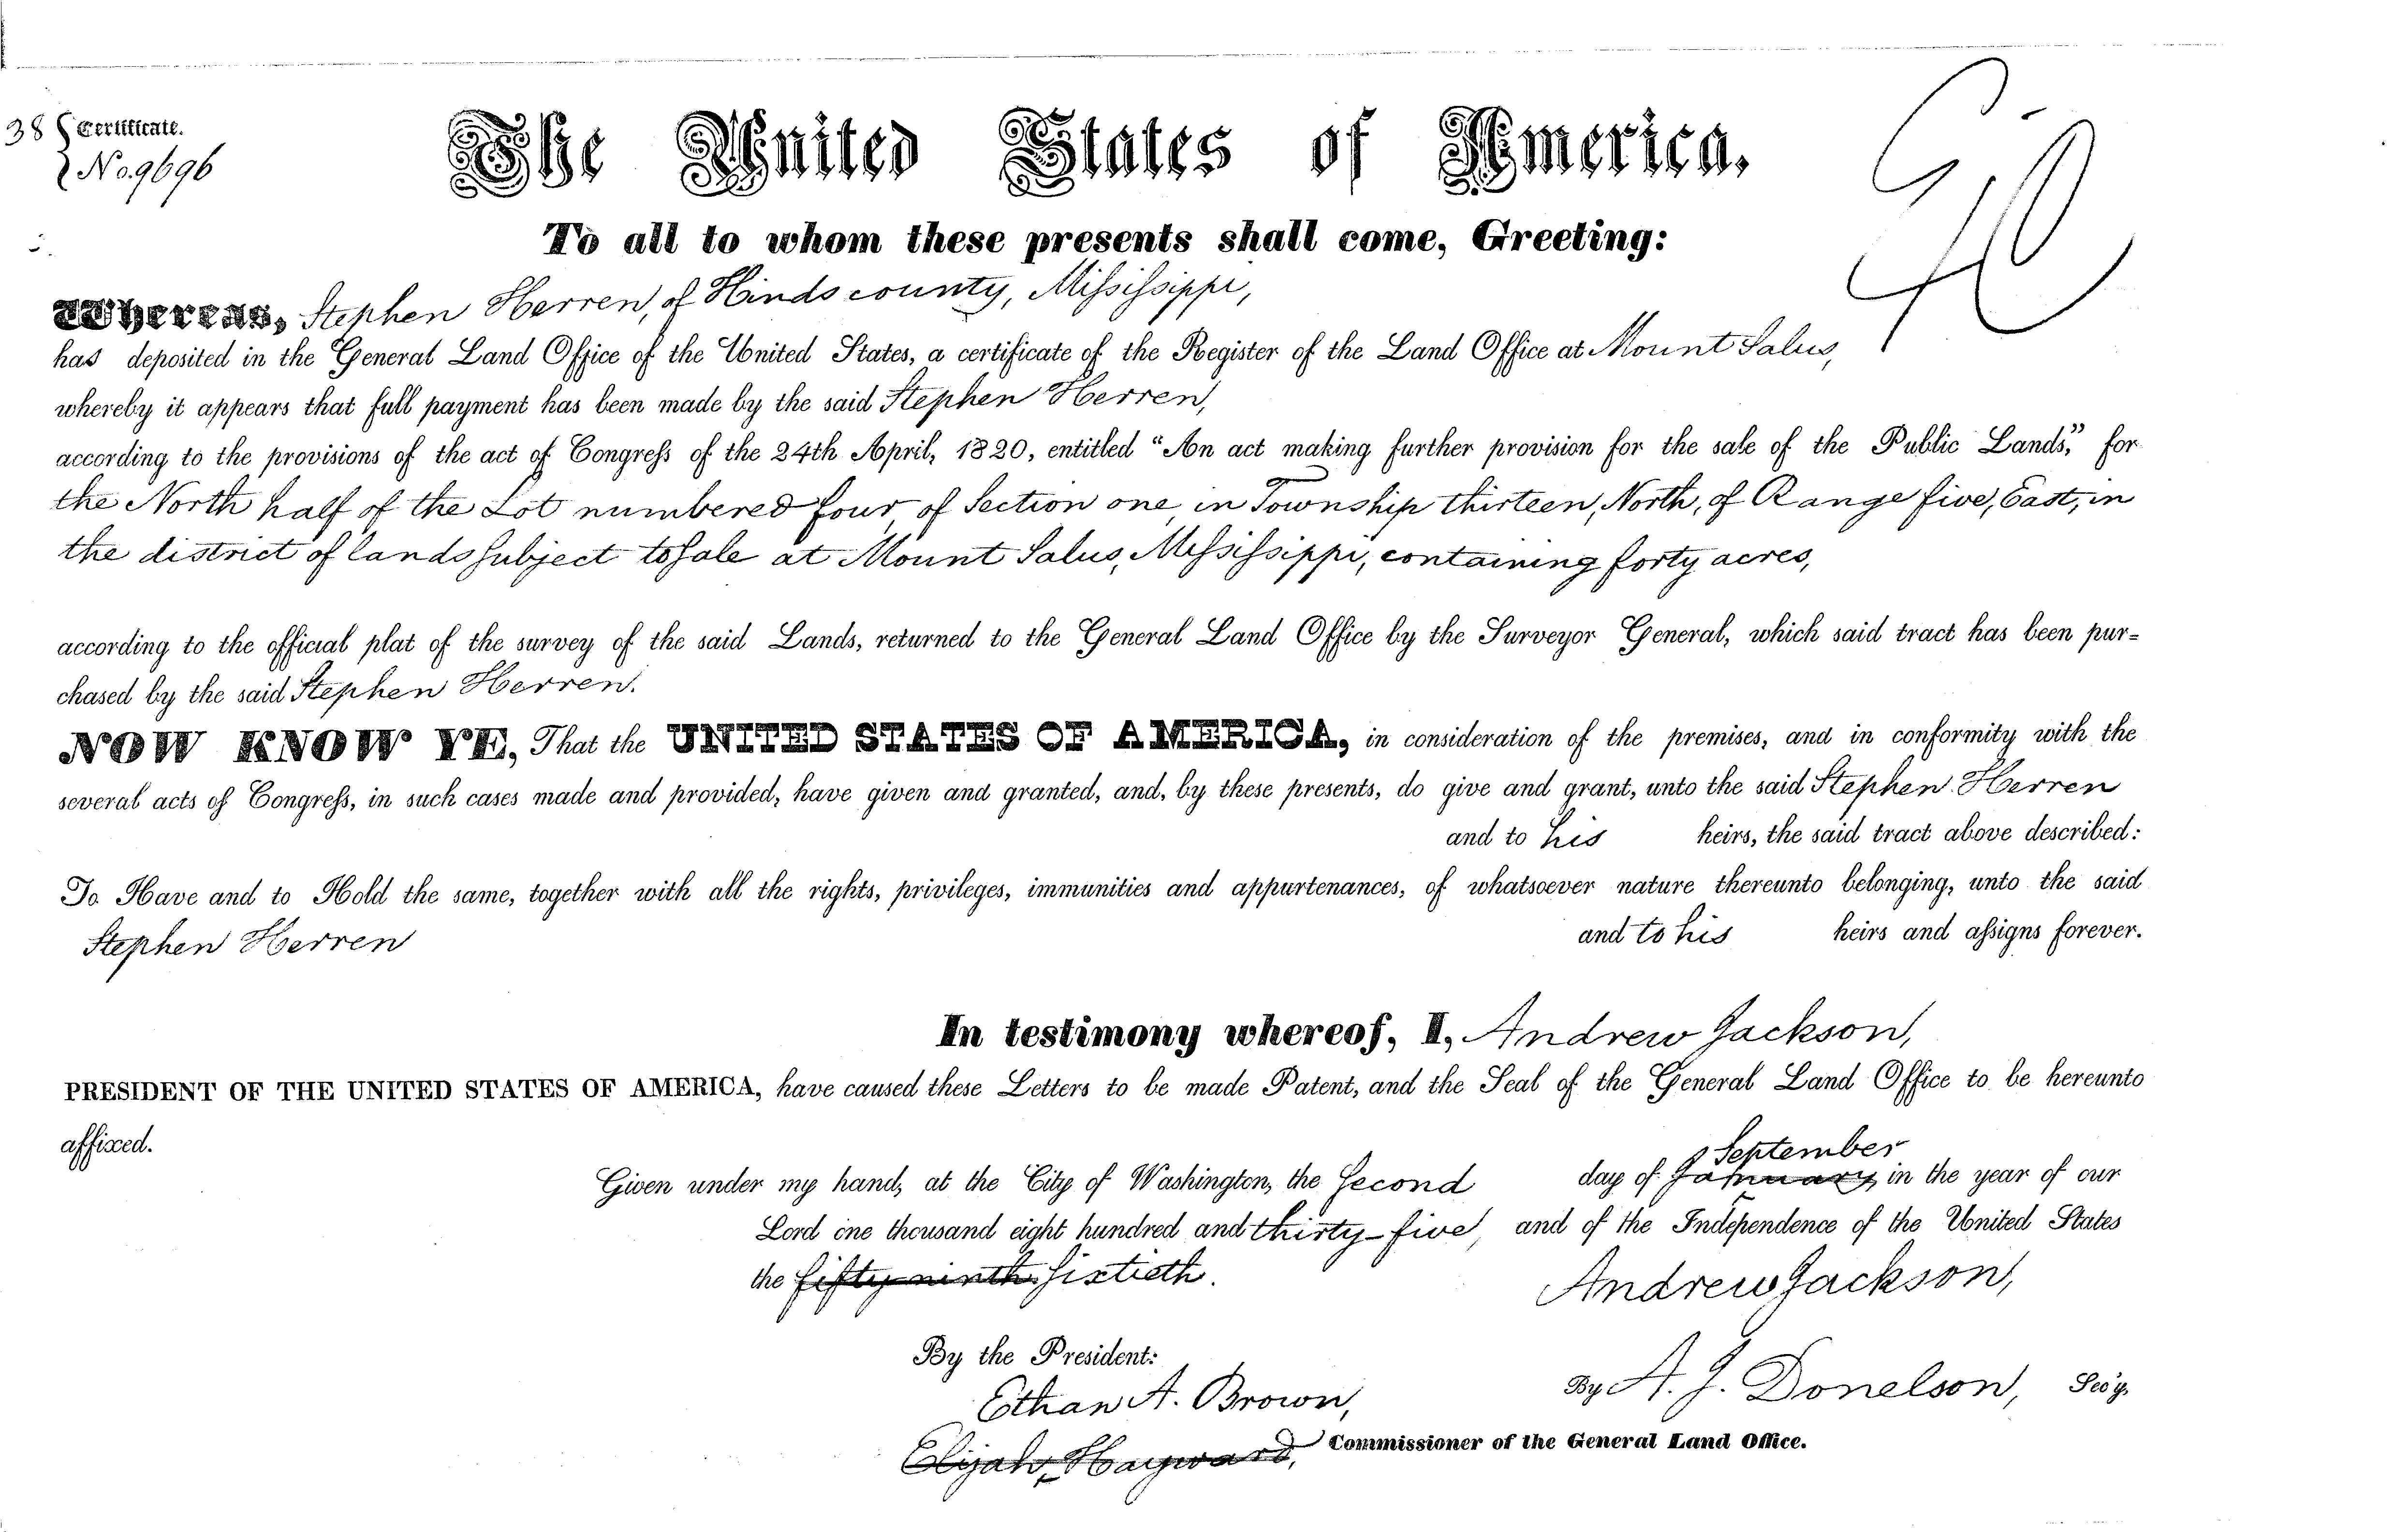 38 Certificate.
No. 9696
The United States of America,
To all to whom these presents shall come, Greeting:
Whereas, Stephen Herren, of Hinds county, Mississippi,
has deposited in the General Land Office of the United States, a certificate of the Register of the Land Office at Mount Salus,
whereby it appears that full payment has been made by the said Stephen Herren,
according to the provisions of the act of Congress of the 24th April, 1820, entitled “An act making further provision for the sale of the Public Lands,” for
the North half of the Lot numbered four, of Section one, in Township thirteen, North, of Range five, East, in
the district of lands subject to sale at Mount Salus, Mississippi, containing forty acres,
according to the official plat of the survey of the said Lands, returned to the General Land Office by the Surveyor General, which said tract has been pur=
chased by the said Stephen Herren.
NOW KNOW YE, That the UNITED STATES OF AMERICA, in consideration of the premises, and in conformity with the
several acts of Congress, in such cases made and provided, have given and granted, and, by these presents, do give and grant, unto the said Stephen Herren
and to his heirs, the said tract above described:
To Have and to Hold the same, together with all the rights, privileges, immunities and appurtenances, of whatsoever nature thereunto belonging, unto the said
Stephen Herren and to his heirs and assigns forever.
In testimony whereof, I, Andrew Jackson,
PRESIDENT OF THE UNITED STATES OF AMERICA, have caused these Letters to be made Patent, and the Seal of the General Land Office to be hereunto
affixed.
September
Given under my hand, at the City of Washington, the Second day of January in the year of our
Lord one thousand eight hundred and thirty-five, and of the Independence of the United States
the fifty ninth sixtieth.
Andrew Jackson,
By the President:
By A. J. Donelson, Sec'y.
Ethan A. Brown,
Elijah Hayward, Commissioner of the General Land Office.